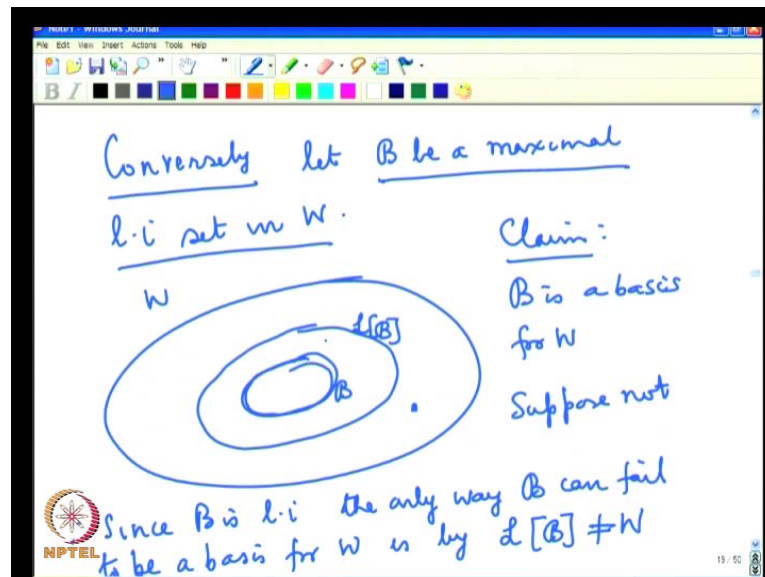 Note1 - Windows Journal
File Edit View Insert Actions Tools Help
B I
Conversely let B be a maximal
l.i set in W.
Claim:
W
B is a basis
L[B]
for W
B
Suppose not
Since B is l.i the only way B can fail
to be a basis for W is by L[B] ≠ W
NPTEL
19 / 50